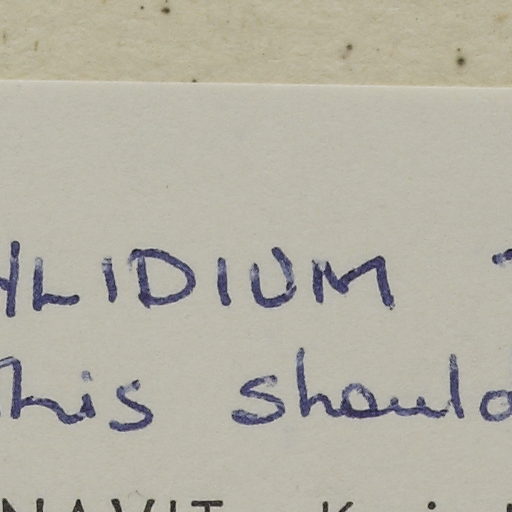 YLIDIUM
this should
NAVIT